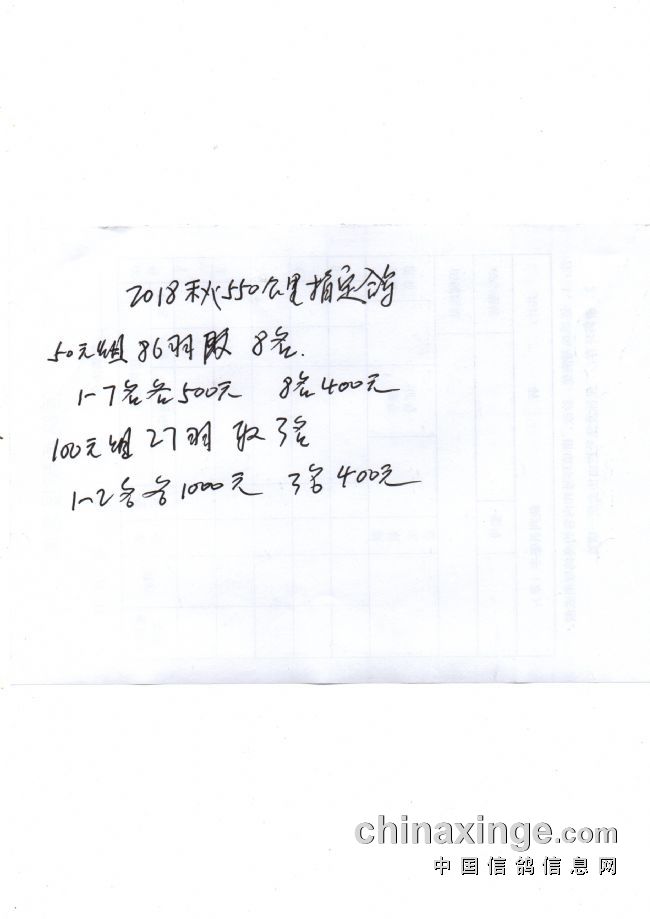 2018秋550公里指定鸽
50元组 86羽取 8名.
1-7名各500元 8名400元
100元组 27羽 取 3名
1-2名各1000元 3名400元
chinaxinge.com
中国信鸽信息网